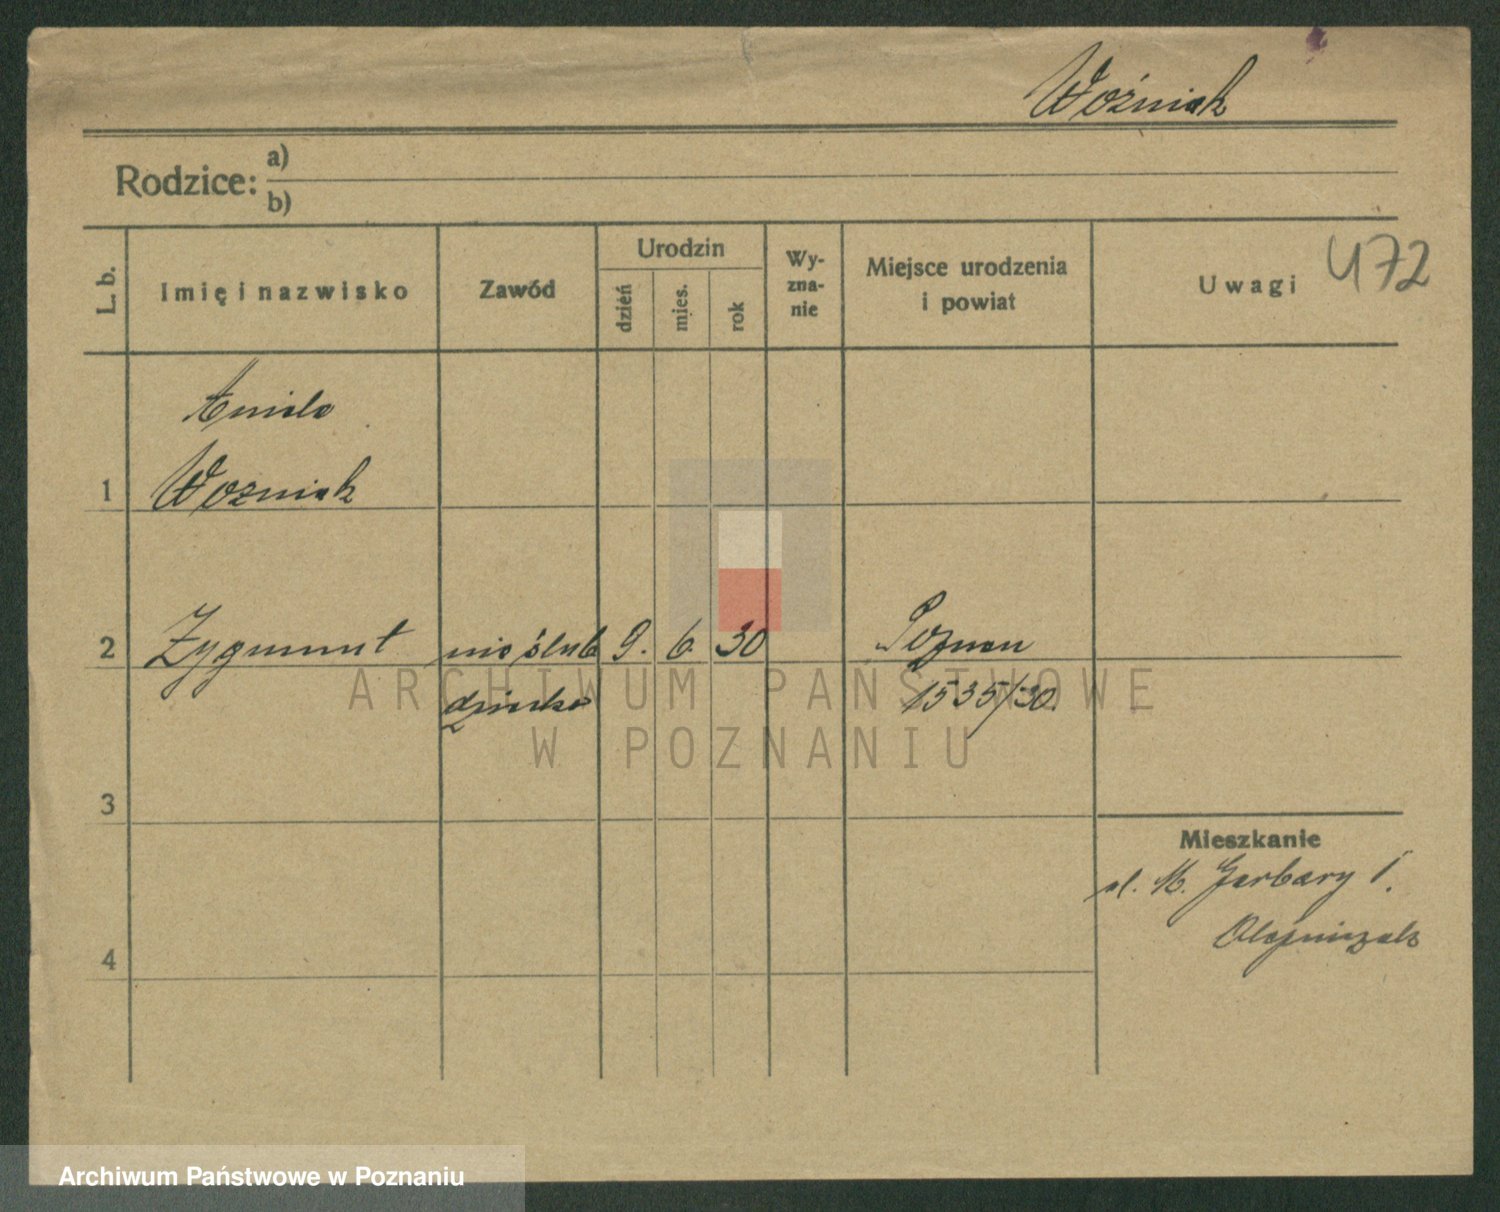 Woźniak
Rodzice: a)
b)
L. b.
Imię i nazwisko
Zawód
Urodzin
dzień
mies.
rok
Wy-
zna-
nie
Miejsce urodzenia
i powiat
Uwagi
472
Aniela
1 Wozniak
2 Zygmunt nieślub 9. 6. 30 Poznan
dziecko 1535/30.
ARCHIWUM PAŃSTWOWE
W POZNANIU
3
Mieszkanie
ul. M. Garbary 1.
Olejniczak
4
Archiwum Państwowe w Poznaniu